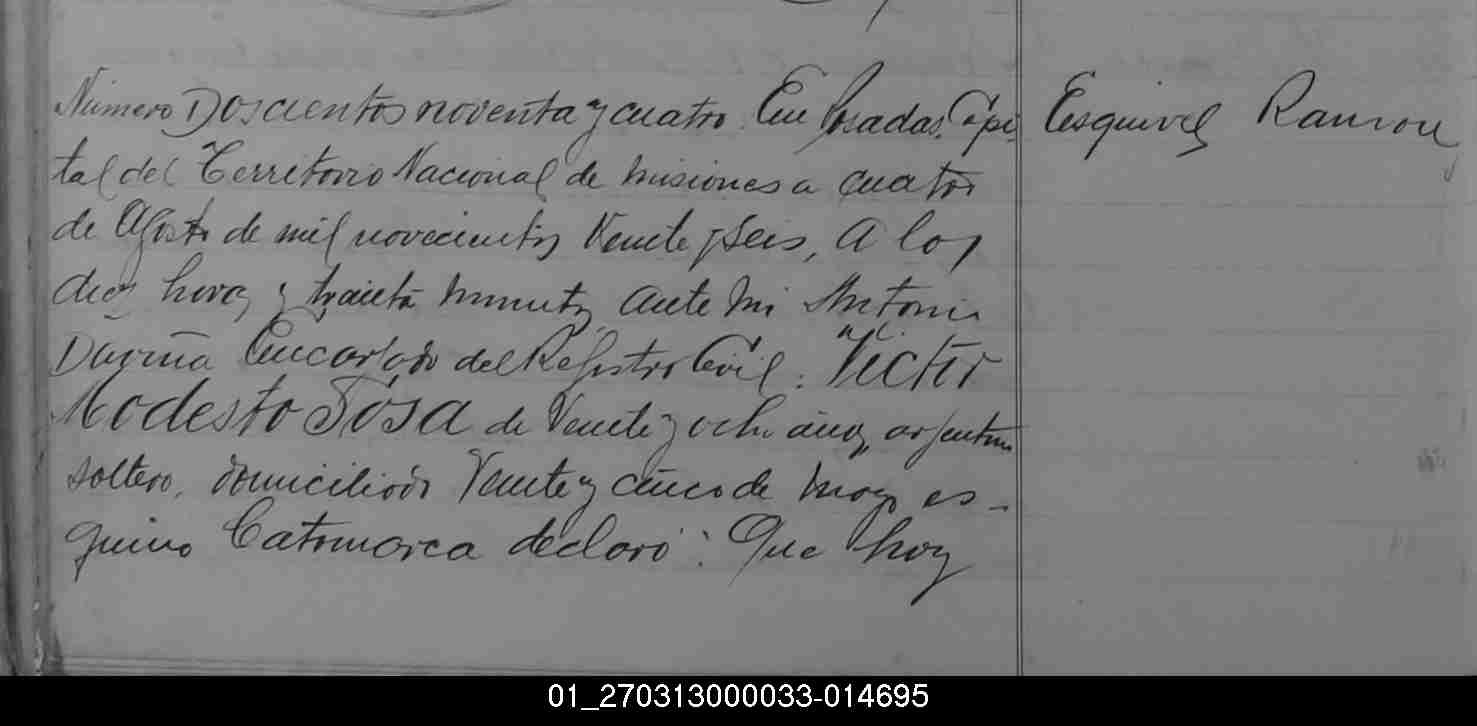 Número Doscientos noventa y cuatro. En Posadas, Capi
Esquivel Ramon
tal del Territorio Nacional de Misiones a cuatro
de Agosto de mil novecientos Veinte y seis, a las
diez horas y treinta minutos, ante mi Antonio
Encargado del Registro Civil: Victor
Modesto Sosa de Veinte y ocho años, argentino
soltero, domiciliado Veinte y cinco de Mayo es-
quina Catamarca declaró: Que hoy
01_270313000033-014695